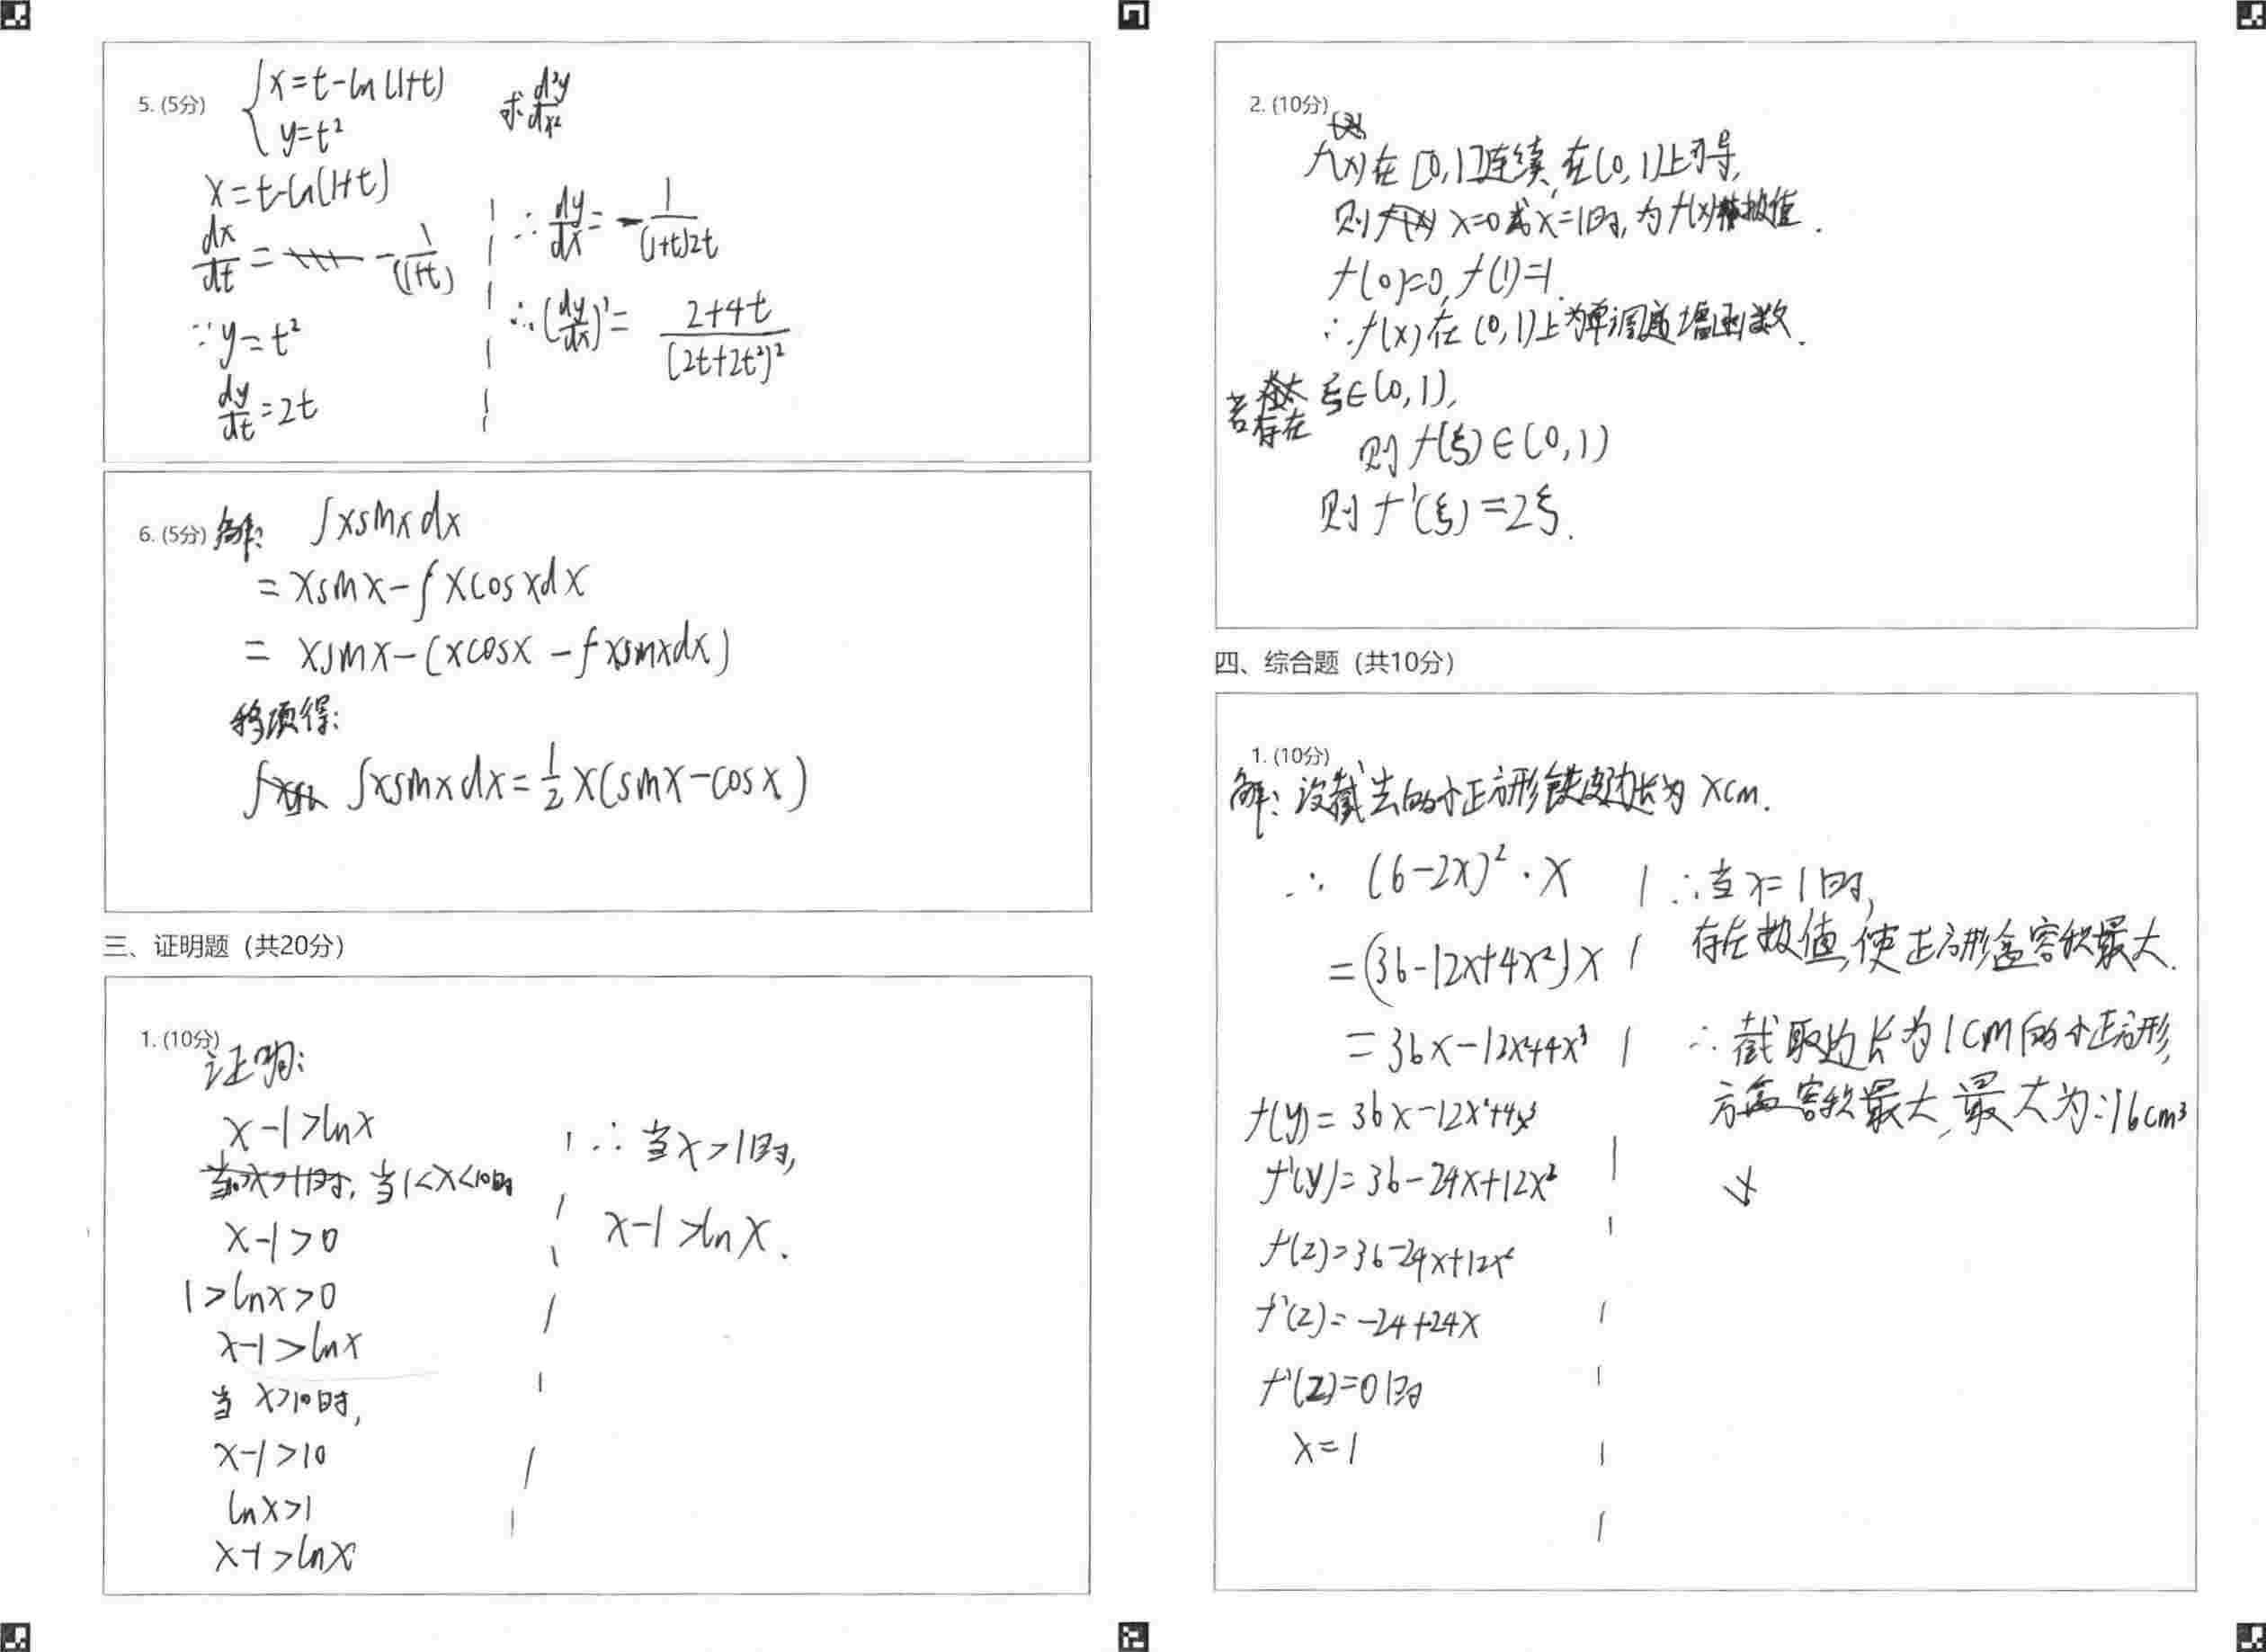 5. (5分)
{ x=t-ln(1+t)
y=t²
求 d²y/dx²
x=t-ln(1+t)
dx/dt = -1/(1+t)
∵ y=t²
dy/dt=2t
∴ dy/dx = -1/(1+t)2t
∴ (dy/dx)' = 2+4t/(2t+2t²)²
6. (5分) 解: ∫xsinxdx
= xsinx-∫xcosxdx
= xsinx-(xcosx-∫xsinxdx)
移项得:
∫xsinxdx=½x(sinx-cosx)
三、证明题（共20分）
1. (10分)
证明:
x-1>lnx
当1<x<10时
x-1>0
1>lnx>0
x-1>lnx
当x>10时,
x-1>10
lnx>1
x-1>lnx
∴当x>1时,
x-1>lnx.
2. (10分)
f(x)在[0,1]连续,在(0,1)上可导,
则 x=0或x=1时,为f(x)极值.
f(0)=0, f(1)=1.
∴f(x)在(0,1)上为单调递增函数.
若存在 ξ∈(0,1),
则 f(ξ)∈(0,1)
则 f'(ξ)=2ξ.
四、综合题（共10分）
1. (10分)
解: 设截去的小正方形铁皮边长为xcm.
∴ (6-2x)²·x
=(36-12x+4x²)x
=36x-12x²+4x³
f(y)=36x-12x²+4x³
f'(y)=36-24x+12x²
f(z)=36-24x+12x²
f'(z)=-24+24x
f'(z)=0时
x=1
∴当x=1时,
存在极值,使正方形盒容积最大.
∴截取边长为1cm的小正方形,
方盒容积最大,最大为:16cm³